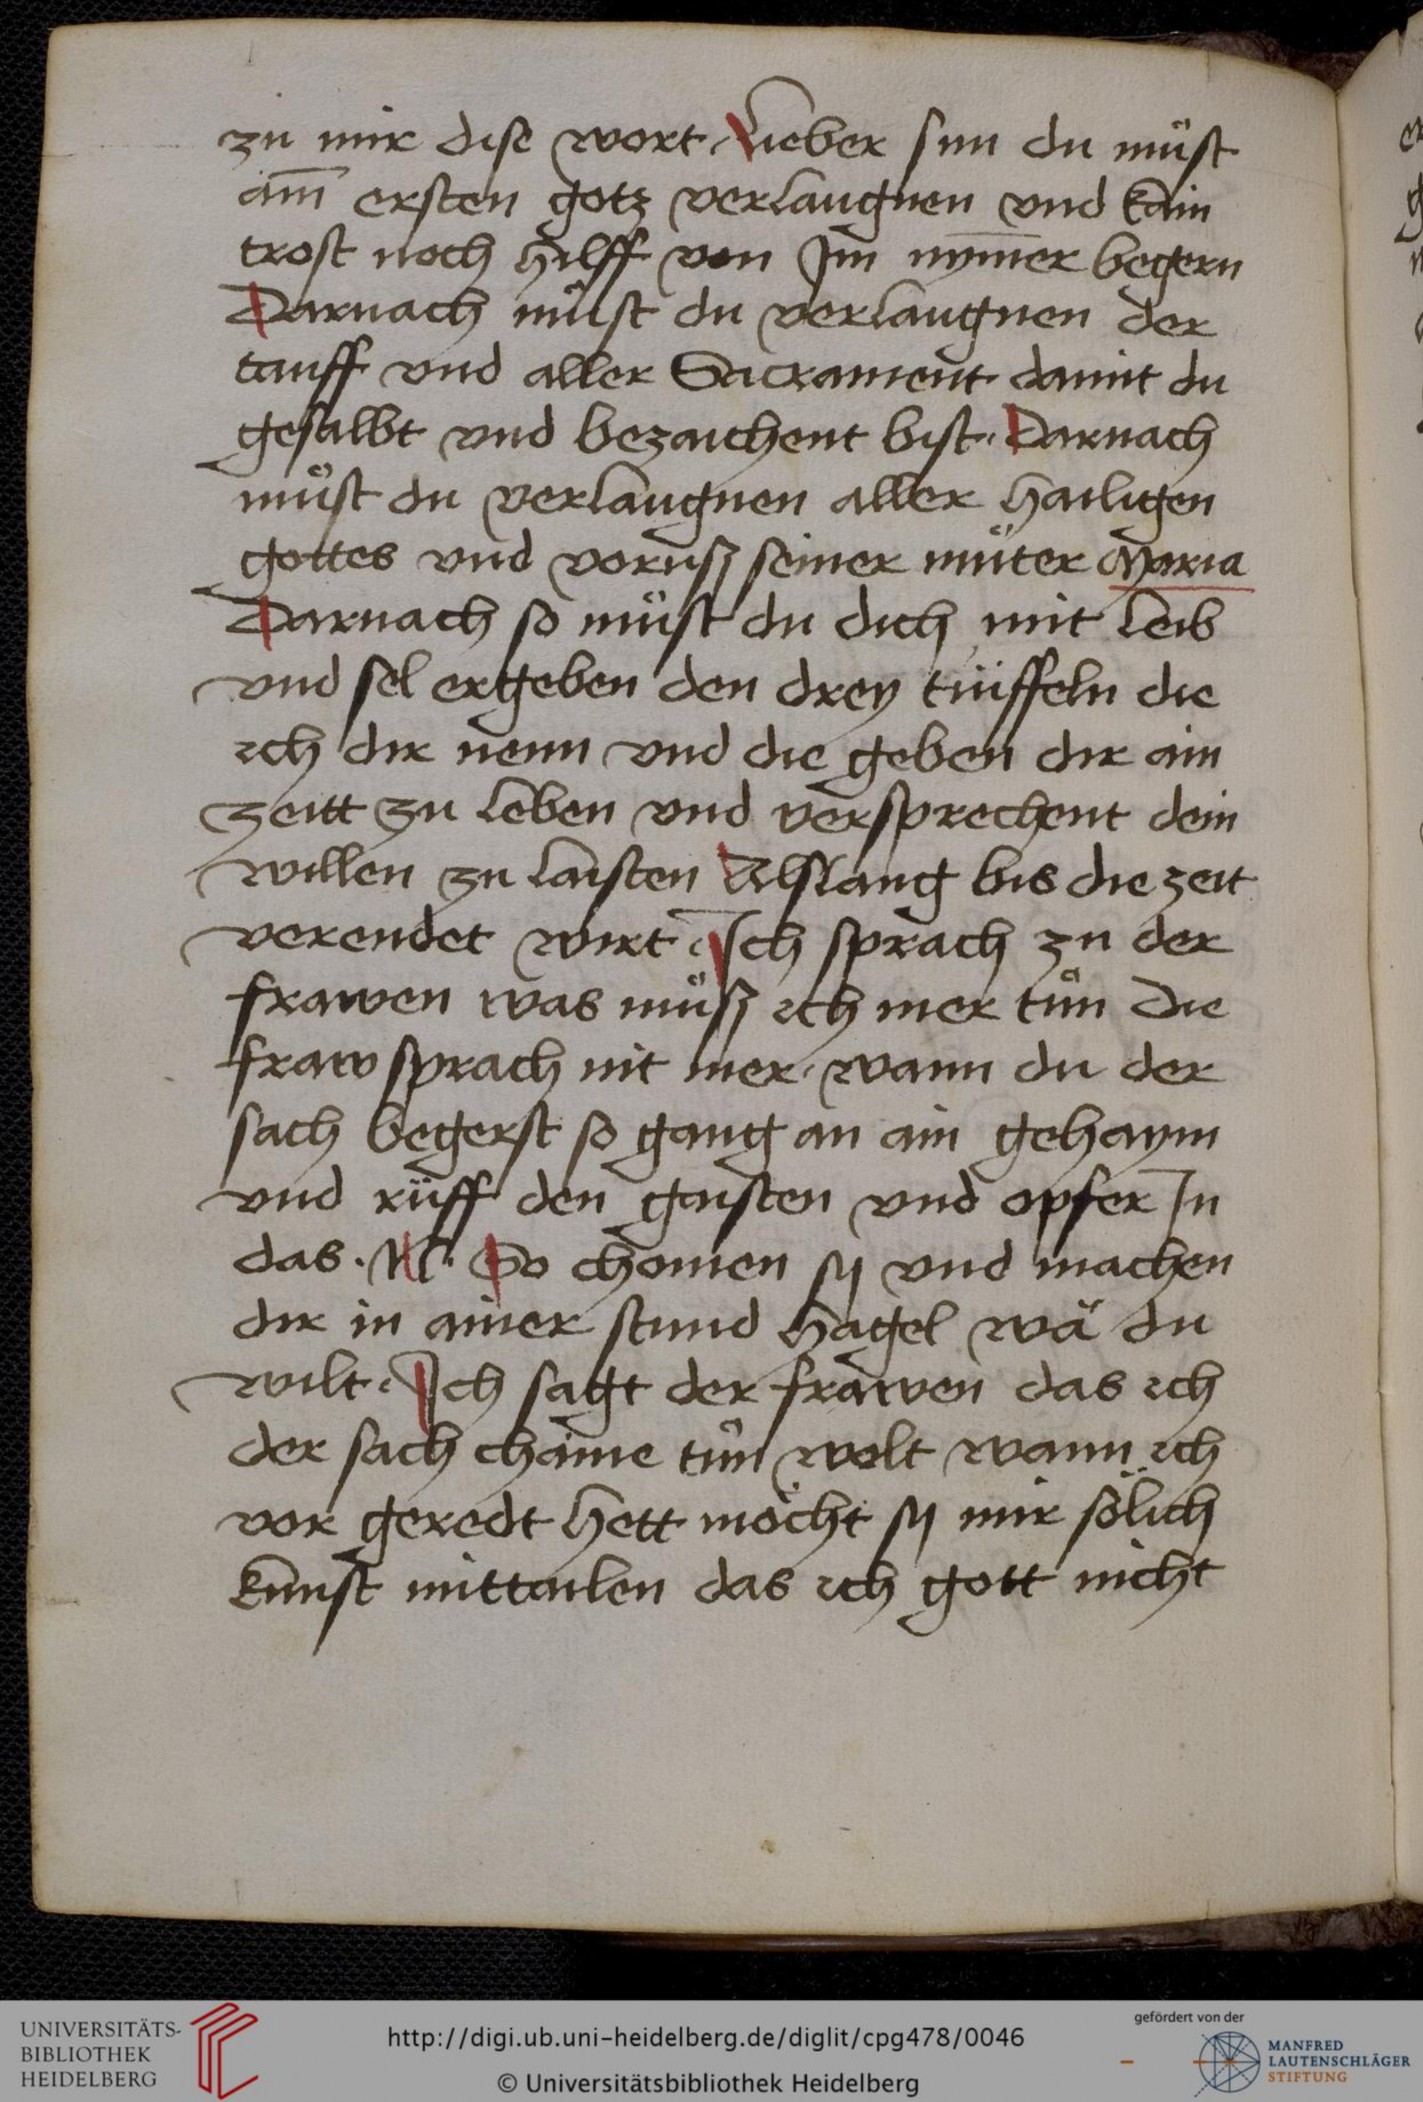 zu mir dise wort. Lieber sun du můst
am̄ ersten gotz verlaugnen vnd kain
trost noch hilff von Im nym̄er begern
Darnach můst du verlaugnen der
tauff vnd aller Sacrament damit du
gesalbt vnd bezaichent bist. Darnach
můst du verlaugnen aller hailigen
gottes vnd voruß seiner můter Maria
Darnach so můst du dich mit leib
vnd sel ergeben den drey tüffeln die
ich dir nenn vnd die geben dir ain
zeitt zu leben vnd versprechent dein
willen zu laisten Alslang bis die zeit
verendet wirt. Ich sprach zu der
frawen was můß ich mer tůn Die
fraw sprach nit mer. wann du der
sach begerst so gang an ain gehaym
vnd rüff den gaisten vnd opfer In
das. N. So chomen sy vnd machen
dir in ainer stund hagel wä du
wilt. Ich sagt der frawen das ich
der sach chaine tůn wolt wann ich
vor geredt hett möcht sy mir sölich
kunst mittailen das ich gott nicht
UNIVERSITÄTS-
BIBLIOTHEK
HEIDELBERG
http://digi.ub.uni-heidelberg.de/diglit/cpg478/0046
© Universitätsbibliothek Heidelberg
gefördert von der
MANFRED
LAUTENSCHLÄGER
STIFTUNG